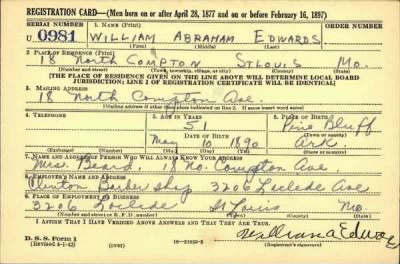 REGISTRATION CARD—(Men born on or after April 28, 1877 and on or before February 16, 1897)
SERIAL NUMBER 1. NAME (Print) ORDER NUMBER
U 0981 WILLIAM ABRAHAM EDWARDS
(First) (Middle) (Last)
2. PLACE OF RESIDENCE (Print)
18 NORTH COMPTON ST LOUIS MO.
(Number and street) (Town, township, village, or city) (County) (State)
[THE PLACE OF RESIDENCE GIVEN ON THE LINE ABOVE WILL DETERMINE LOCAL BOARD
JURISDICTION; LINE 2 OF REGISTRATION CERTIFICATE WILL BE IDENTICAL]
3. MAILING ADDRESS
18 North Compton Ave.
(Mailing address if other than place indicated on line 2. If same insert word same)
4. TELEPHONE 5. AGE IN YEARS 6. PLACE OF BIRTH
51 Pine Bluff
DATE OF BIRTH (Town or county)
May 10 1890 Ark.
(Exchange) (Number) (Mo.) (Day) (Yr.) (State or country)
7. NAME AND ADDRESS OF PERSON WHO WILL ALWAYS KNOW YOUR ADDRESS
Mrs. Beard, No. Compton Ave
8. EMPLOYER'S NAME AND ADDRESS
Clinton Barber shop 3206 Laclede Ave
9. PLACE OF EMPLOYMENT OR BUSINESS
3206 Laclede St Louis Mo.
(Number and street or R. F. D. number) (Town) (County) (State)
I AFFIRM THAT I HAVE VERIFIED ABOVE ANSWERS AND THAT THEY ARE TRUE.
D. S. S. Form 1 William A Edwards
(Revised 4-1-42) (over) 16—21630-2 (Registrant's signature)